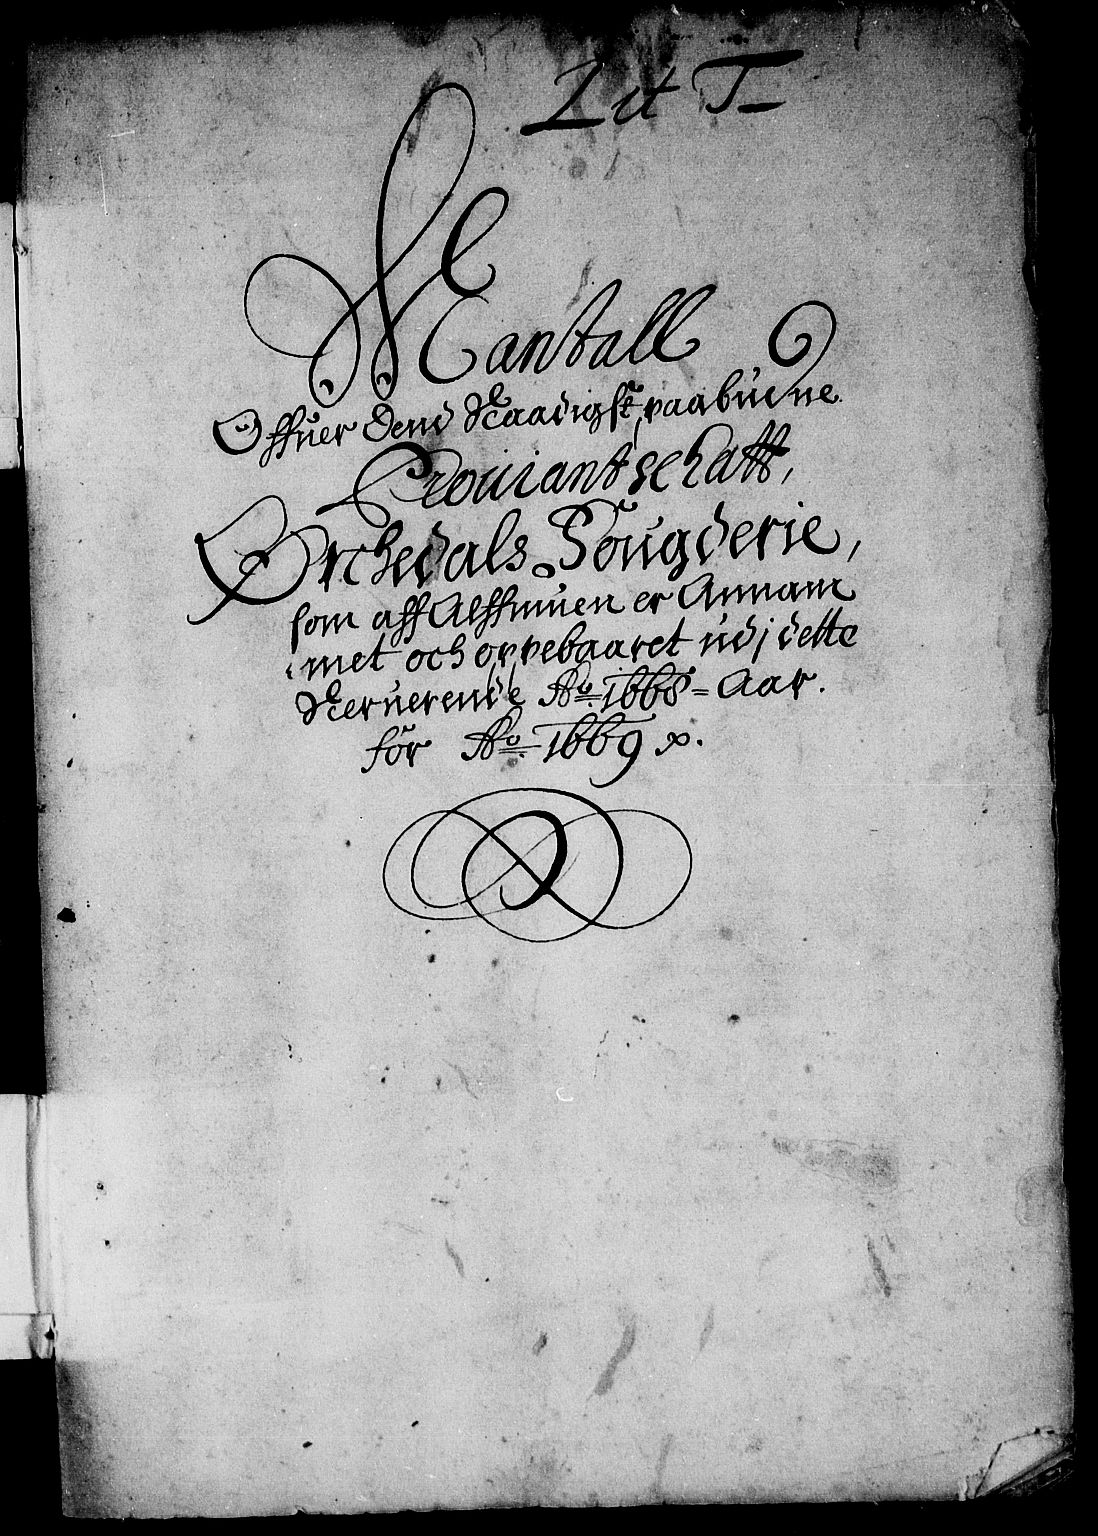 Lit T
Mantall
Offuer Dend Naadigst paabudne
Prouiantschatt,
Orchedals Fougderie,
som aff Alffmuen er Annam
met och oppebaaret udj dette
Neruerende Ao. 1668 = Aar.
för Ao. 1669